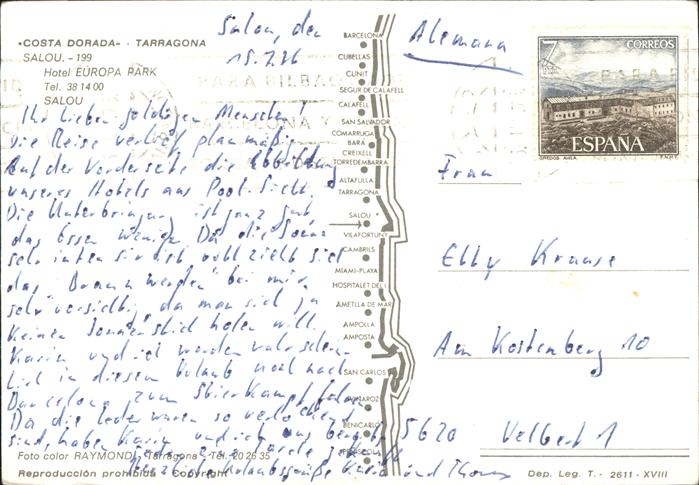 «COSTA DORADA» - TARRAGONA
SALOU. - 199
Hotel EUROPA PARK
Tel. 38 14 00
SALOU
Salou, den
15.7.76
Ihr lieben goldigen Menschen!
Die Reise verlief planmäßig.
Auf der Vorderseite die Abbildung
unseres Hotels aus Pool-Sicht.
Die Unterbringung ist ganz gut,
das Essen weniger. Da die Sonne
sehr intensiv ist vollzieht sich
das "Braun werden" bei mir
sehr vorsichtig, da man sich ja
keinen Sonnenstich holen will.
Karin und ich werden
in diesem Urlaub noch nach
Barcelona zum Stierkampf fahren.
Da die so verlockend
sind, haben Karin und ich uns
Herzliche Urlaubsgrüße Karin und Thomas
Foto color RAYMOND, Tarragona - Tel. 20 26 35
Reproducción prohibida - Copyright
BARCELONA
CUBELLAS
CUNIT
SEGUR DE CALAFELL
CALAFELL
SAN SALVADOR
COMARRUGA
BARA
CREIXELL
TORREDEMBARRA
ALTAFULLA
TARRAGONA
SALOU
VILAFORTUNY
CAMBRILS
MIAMI-PLAYA
HOSPITALET DEL I
AMETLLA DE MAR
AMPOLLA
AMPOSTA
SAN CARLOS
VINAROZ
BENICARLO
PEÑISCOLA
Alemania
7
PTA
CORREOS
ESPAÑA
GREDOS. AVILA.
F.N.M.T.
Frau
Elly Krause
Am Kostenberg 10
5620 Velbert 1
Dep. Leg. T. - 2611 - XVIII